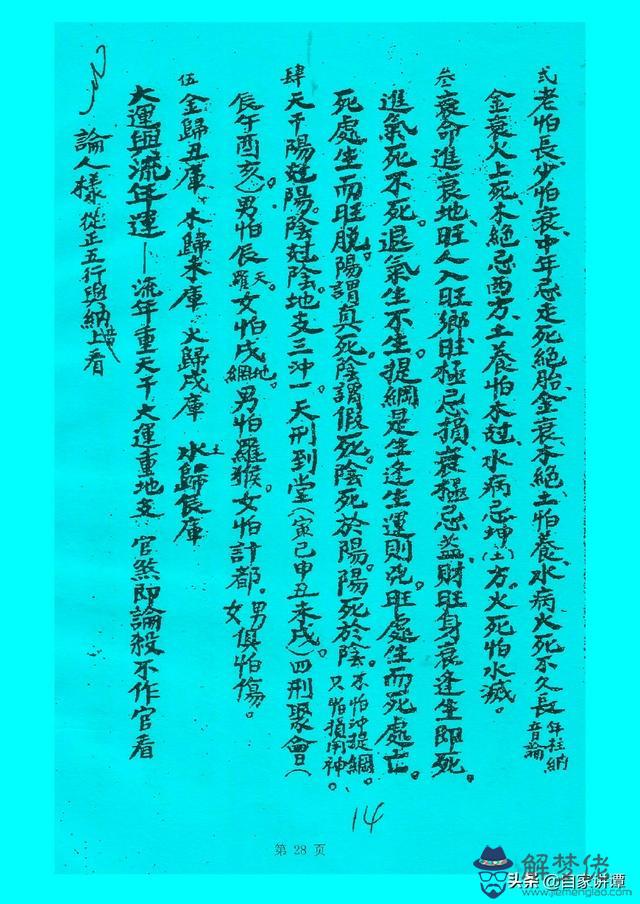 弍老怕長、少怕衰、中年忌走死絕胎、金衰木絕、土怕養、水病火死不久長年柱納音論
金衰火上死、木絕忌西方、土養怕木尅、水病忌坤(土)方。火死怕水滅。
叁衰命進衰地、旺人入旺鄉、旺極忌損、衰極忌益、財旺身衰逢生即死。
進氣死不死。退氣生不生。提綱是生逢生運則死。旺處生而死處亡。
死處生而旺脫。陽謂真死陰謂假死。陰死於陽。陽死於陰。不怕沖提綱。只怕損用神。
肆天干陽尅陽。陰尅陰。地支三沖一天刑到堂(寅巳申丑未戌)四刑聚會(
辰午酉亥)男怕辰天羅。女怕戌地網。男怕羅猴。女怕計都。男女俱怕傷。
伍金歸丑庫、木歸未庫 火歸戌庫 水土歸辰庫
大運與流年運—流年重天干大運重地支 官煞即論殺不作官看
論人樣從正五行與納音上看
14
第 28 页
解梦佬
www.jiemenglao.com
头条 @自家讲谭